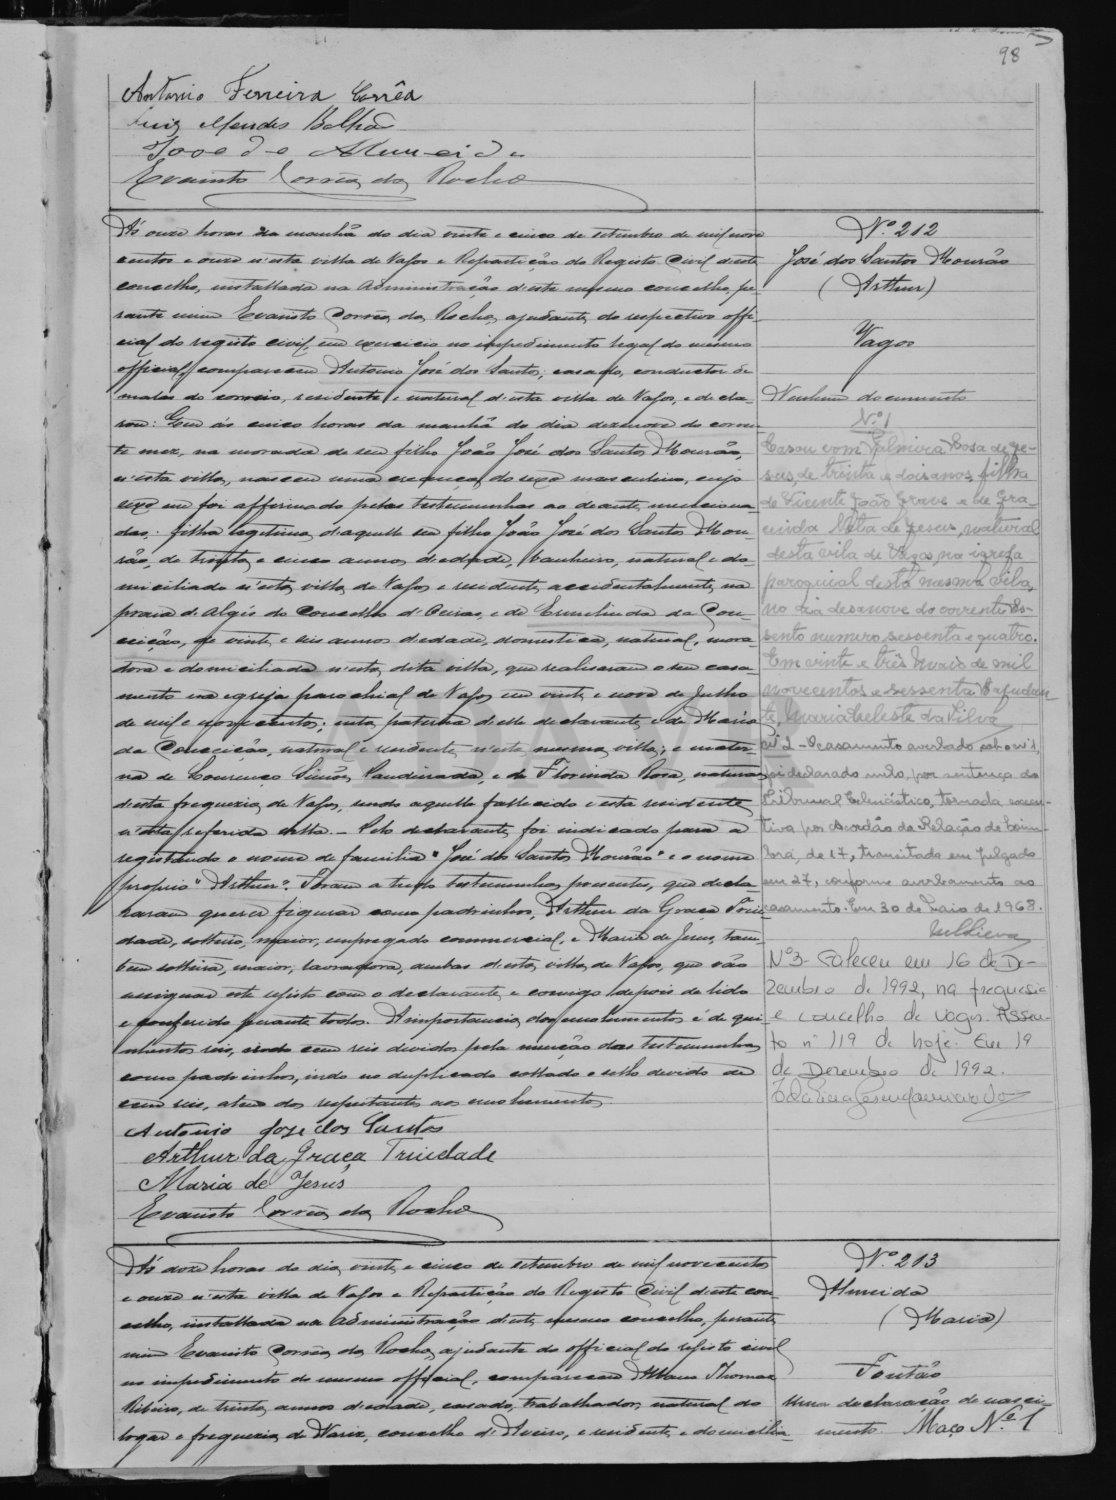 98
Antonio Ferreira Corrêa
Luiz Mendes Bolhão
José de Almeida
Evaristo Corrêa da Rocha
Ás onze horas da manhã do dia vinte e cinco de setembro de mil nove
centos e onze n'esta villa de Vagos e Repartição do Registo Civil d'este
concelho, installada na Administração d'este mesmo concelho, pe-
rante mim Evaristo Corrêa da Rocha, ajudante do respectivo offi-
cial do registo civil, em exercicio no impedimento legal do mesmo
official, compareceu Antonio José dos Santos, casado, conductor de
malas do correio, residente e natural d'esta villa de Vagos, e decla-
rou: Que ás cinco horas da manhã do dia dezenove do corren-
te mez, na morada de seu filho João José dos Santos Mourão,
n'esta villa, nasceu uma creança do sexo masculino, cujo
sexo me foi affirmado pelas testemunhas ao deante menciona-
das: filho legitimo d'aquelle seu filho João José dos Santos Mou-
rão, de trinta e cinco annos d'edade, banheiro, natural e do-
miciliado n'esta villa de Vagos e residente accidentalmente na
praia d'Algés do Concelho d'Oeiras, e de Ermelinda da Con-
ceição, de vinte e seis annos d'edade, domestica, natural, mora-
dora e domiciliada n'esta dita villa, que realisaram o seu casa-
mento na egreja parochial de Vagos em vinte e nove de Julho
de mil e novecentos; neto paterno d'elle declarante e de Maria
da Conceição, natural e residente n'esta mesma villa; e mater-
no de Lourenço Simões Sandinada, e de Florinda Rosa, naturaes
d'esta freguezia de Vagos, sendo aquelle fallecido e esta residente
n'esta referida villa. - Pelo declarante foi indicado para o
registando o nome de familia "José dos Santos Mourão" e o nome
proprio "Arthur". Foram a tudo testemunhas presentes, que decla-
raram querer figurar como padrinhos, Arthur da Graça Trin-
dade, solteiro, maior, empregado commercial, e Maria de Jesus, tam-
bem solteira, maior, lavradora, ambos d'esta villa de Vagos, que vão
assignar este registo com o declarante e comigo depois de lido
e conferido perante todos. A importancia dos emolumentos é de qui-
nhentos reis, sendo cem reis devidos pela menção das testemunhas
como padrinhos, indo no duplicado collado o sello devido de
cem reis, alem dos respeitantes aos emolumentos.
Antonio José dos Santos
Arthur da Graça Trindade
Maria de Jesus
Evaristo Corrêa da Rocha
Nº 212
José dos Santos Mourão
(Arthur)
Vagos
Nenhum documento
Nº 1
Casou com Palmira Rosa de Je-
sus, de trinta e dois anos, filha
de Vicente João Grave e de Gra-
cinda Neta de Jesus, natural
desta vila de Vagos, na igreja
paroquial desta mesma vila,
no dia dezanove do corrente. As-
sento numero sessenta e quatro.
Em vinte e três Maio de mil
novecentos e sessenta. A ajudan-
te, Maria Celeste da Silva
Nº 2 - O casamento averbado sob o nº 1,
foi declarado nulo, por sentença do
Tribunal Eclesiástico, tornada execu-
tiva por acordão da Relação de Coim-
bra, de 17, transitado em julgado
em 27, conforme averbamento ao
casamento. Em 30 de Maio de 1968.
Nº 3 - Faleceu em 16 de De-
zembro de 1992, na freguesia
e concelho de Vagos. Assen-
to nº 119 de hoje. Em 19
de Dezembro de 1992.
ADAVR
Ás doze horas do dia vinte e cinco de setembro de mil novecentos
e onze n'esta villa de Vagos e Repartição do Registo Civil d'este con-
celho, installada na Administração d'este mesmo concelho, perante
mim Evaristo Corrêa da Rocha, ajudante do official do registo civil
no impedimento do mesmo official, compareceu Albano Thomaz
Ribeiro, de trinta annos d'edade, casado, trabalhador, natural do
logar e freguezia de Nariz, concelho d'Aveiro, e residente e domicilia-
Nº 213
Almeida
(Maria)
Fontão
Uma declaração de nasci-
mento. Maço Nº 1